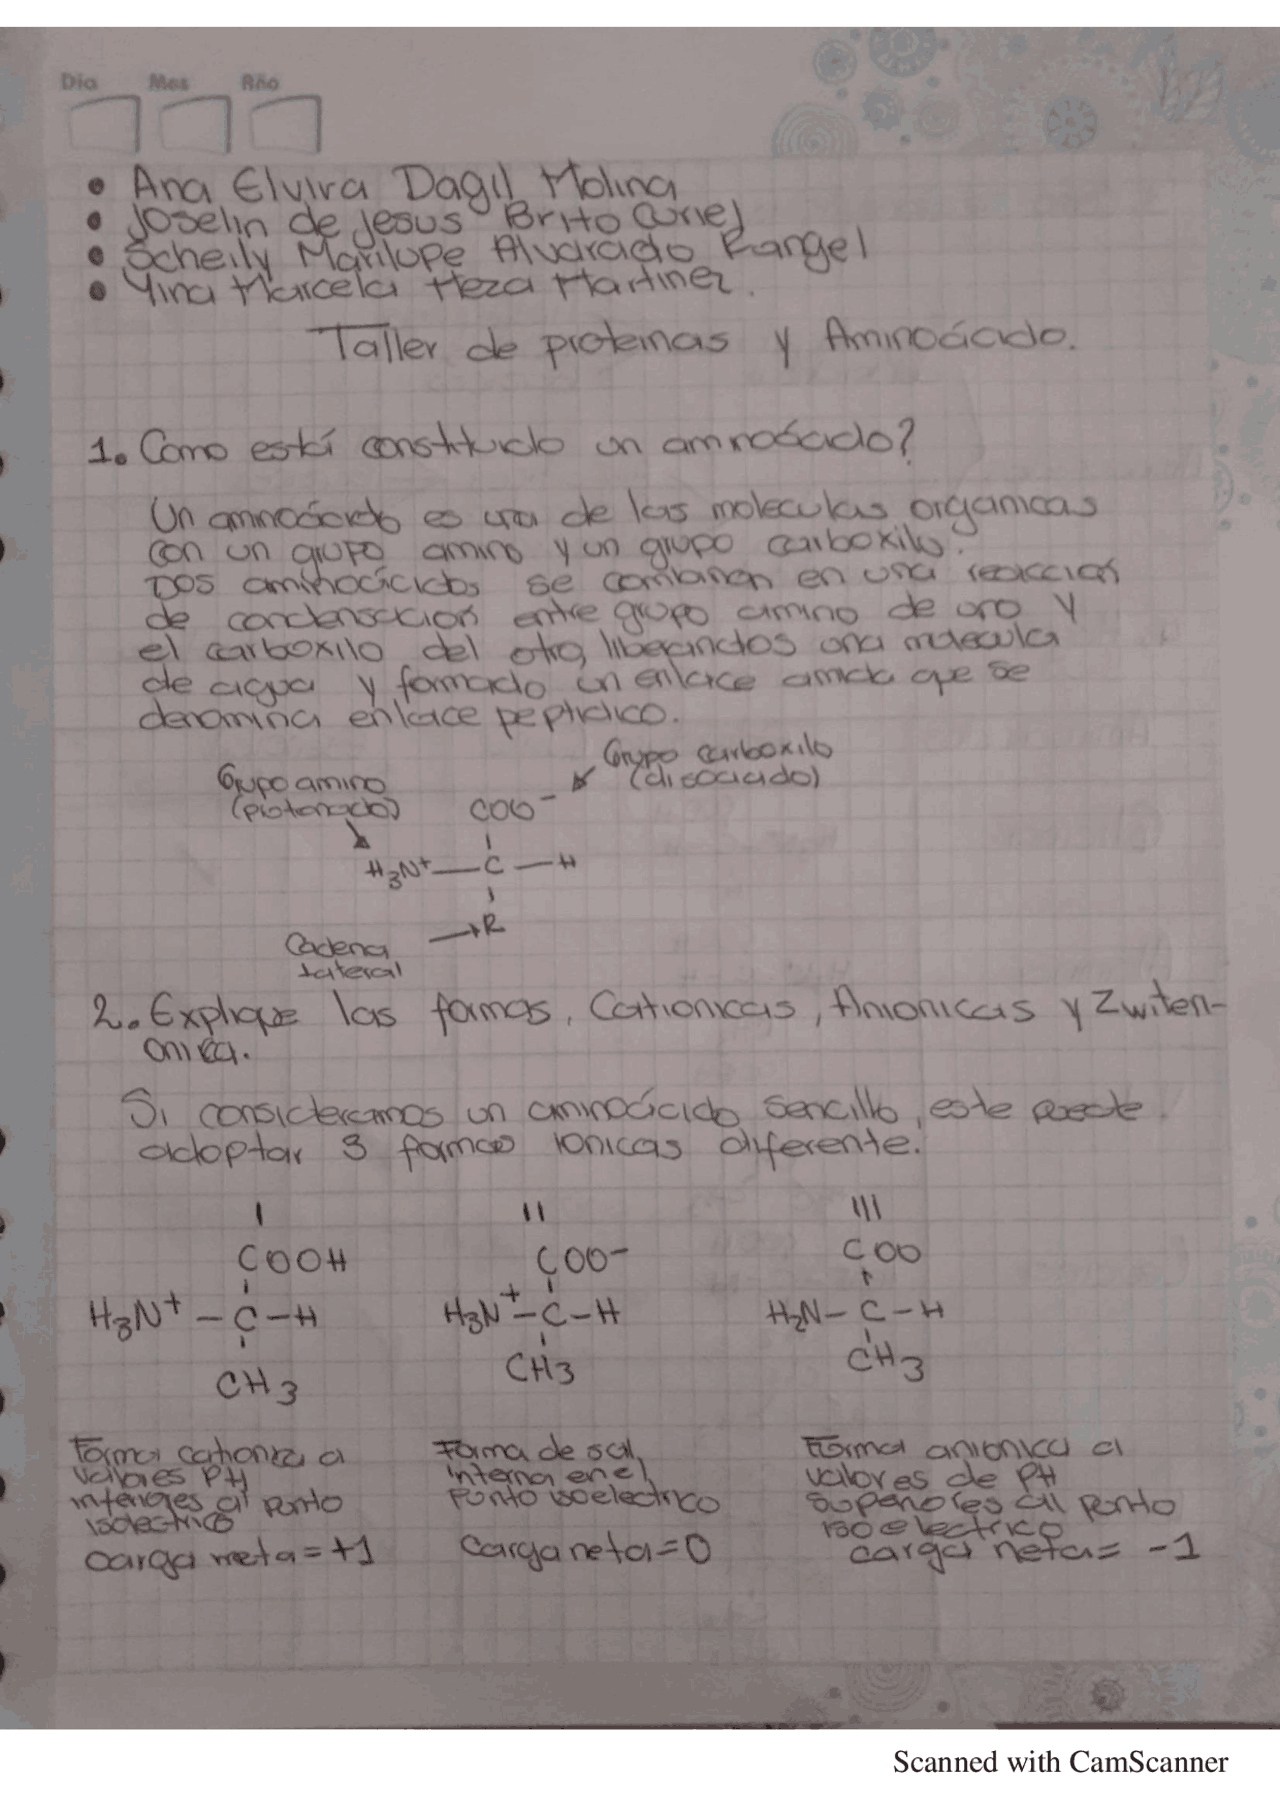 Dia Mes Año
• Ana Elvira Dagil Molina
• Joselin de Jesus Brito Curiel
• Scheily Marilupe Alvarado Rangel
• Yina Marcela Meza Martinez.
Taller de proteinas y Aminoácido.
1. Como está constituido un aminoácido?
Un aminoácido es una de las moleculas organicas
con un grupo amino y un grupo carboxilo.
Dos aminoácidos se combinan en una reacción
de condensación entre grupo amino de uno y
el carboxilo del otro, liberandos una molecula
de agua y formado un enlace amida que se
denomina enlace peptidico.
Grupo carboxilo
(disociado)
Grupo amino
(protonado)
COO⁻
H₃N⁺ — C — H
R
Cadena
lateral
2. Explique las formas, Cationicas, Anionicas y Zwiten-
onica.
Si consideramos un aminoácido sencillo, este puede
adoptar 3 formas ionicas diferente.
I II III
COOH COO⁻ COO
H₃N⁺ – C – H H₃N⁺ – C – H H₂N – C – H
CH3 CH3 CH3
Forma cationica a
valores PH
inferiores al punto
isolectrico
carga neta = +1
Forma de sal
interna en el
punto isoelectrico
Carga neta = 0
Forma anionica a
valores de PH
superiores al punto
isoelectrico
carga neta = -1
Scanned with CamScanner